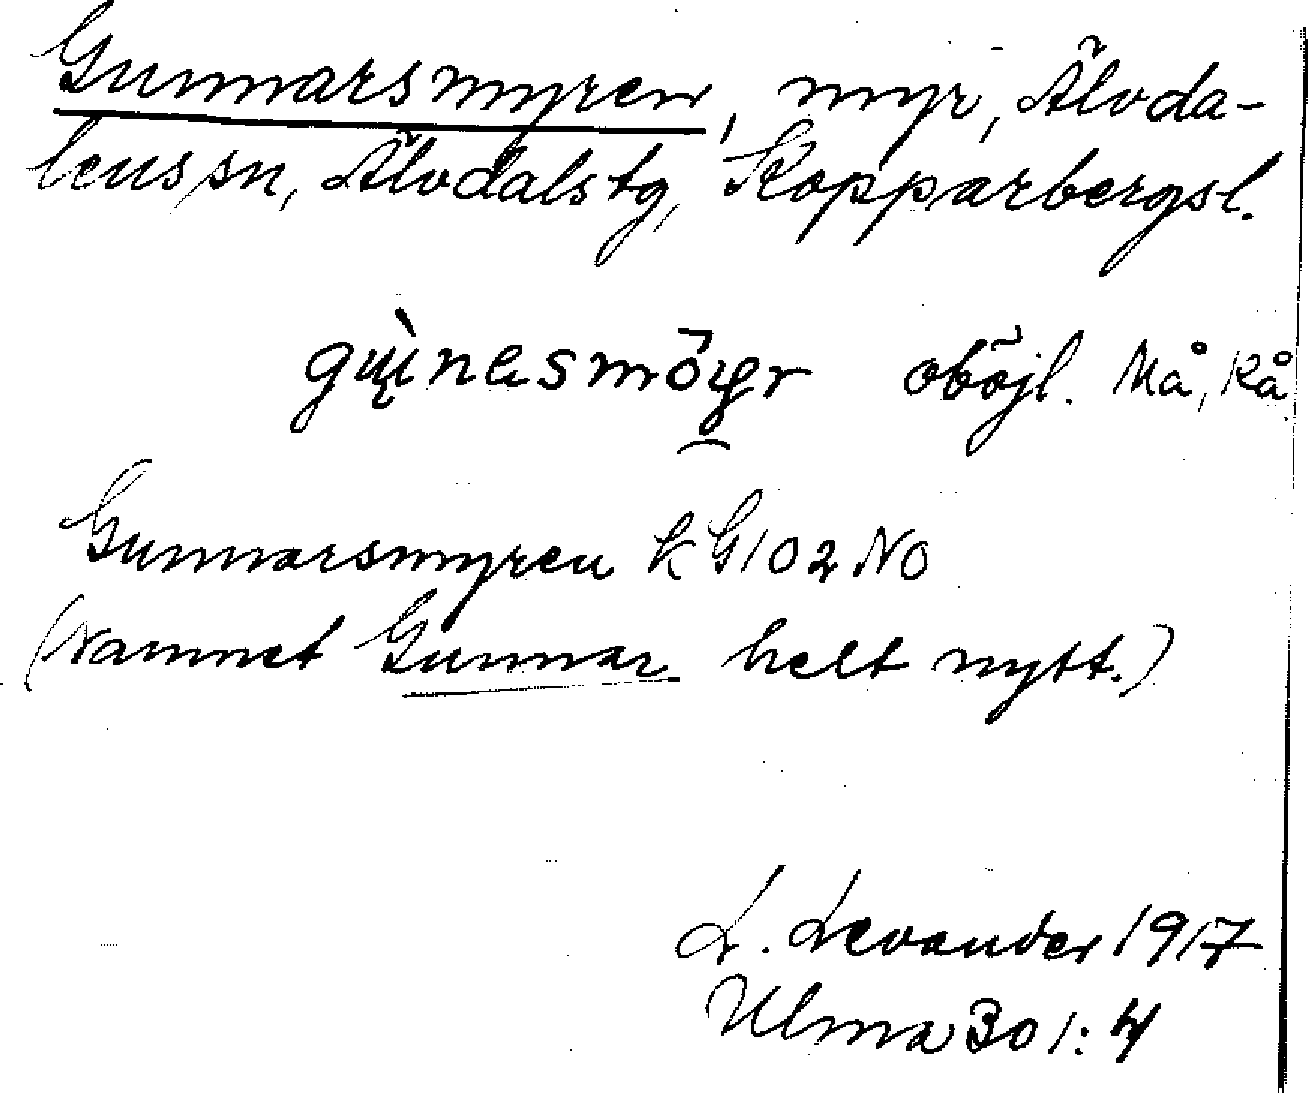 Gunnarsmyren, myr, Älvda-
lens sn, Älvdals tg, Kopparbergs l.
oböjl. Må, Rå
Gunnarsmyren k G 102 NO
(Namnet Gunnar helt nytt.)
L. Levander 1917
Ulma 301:4